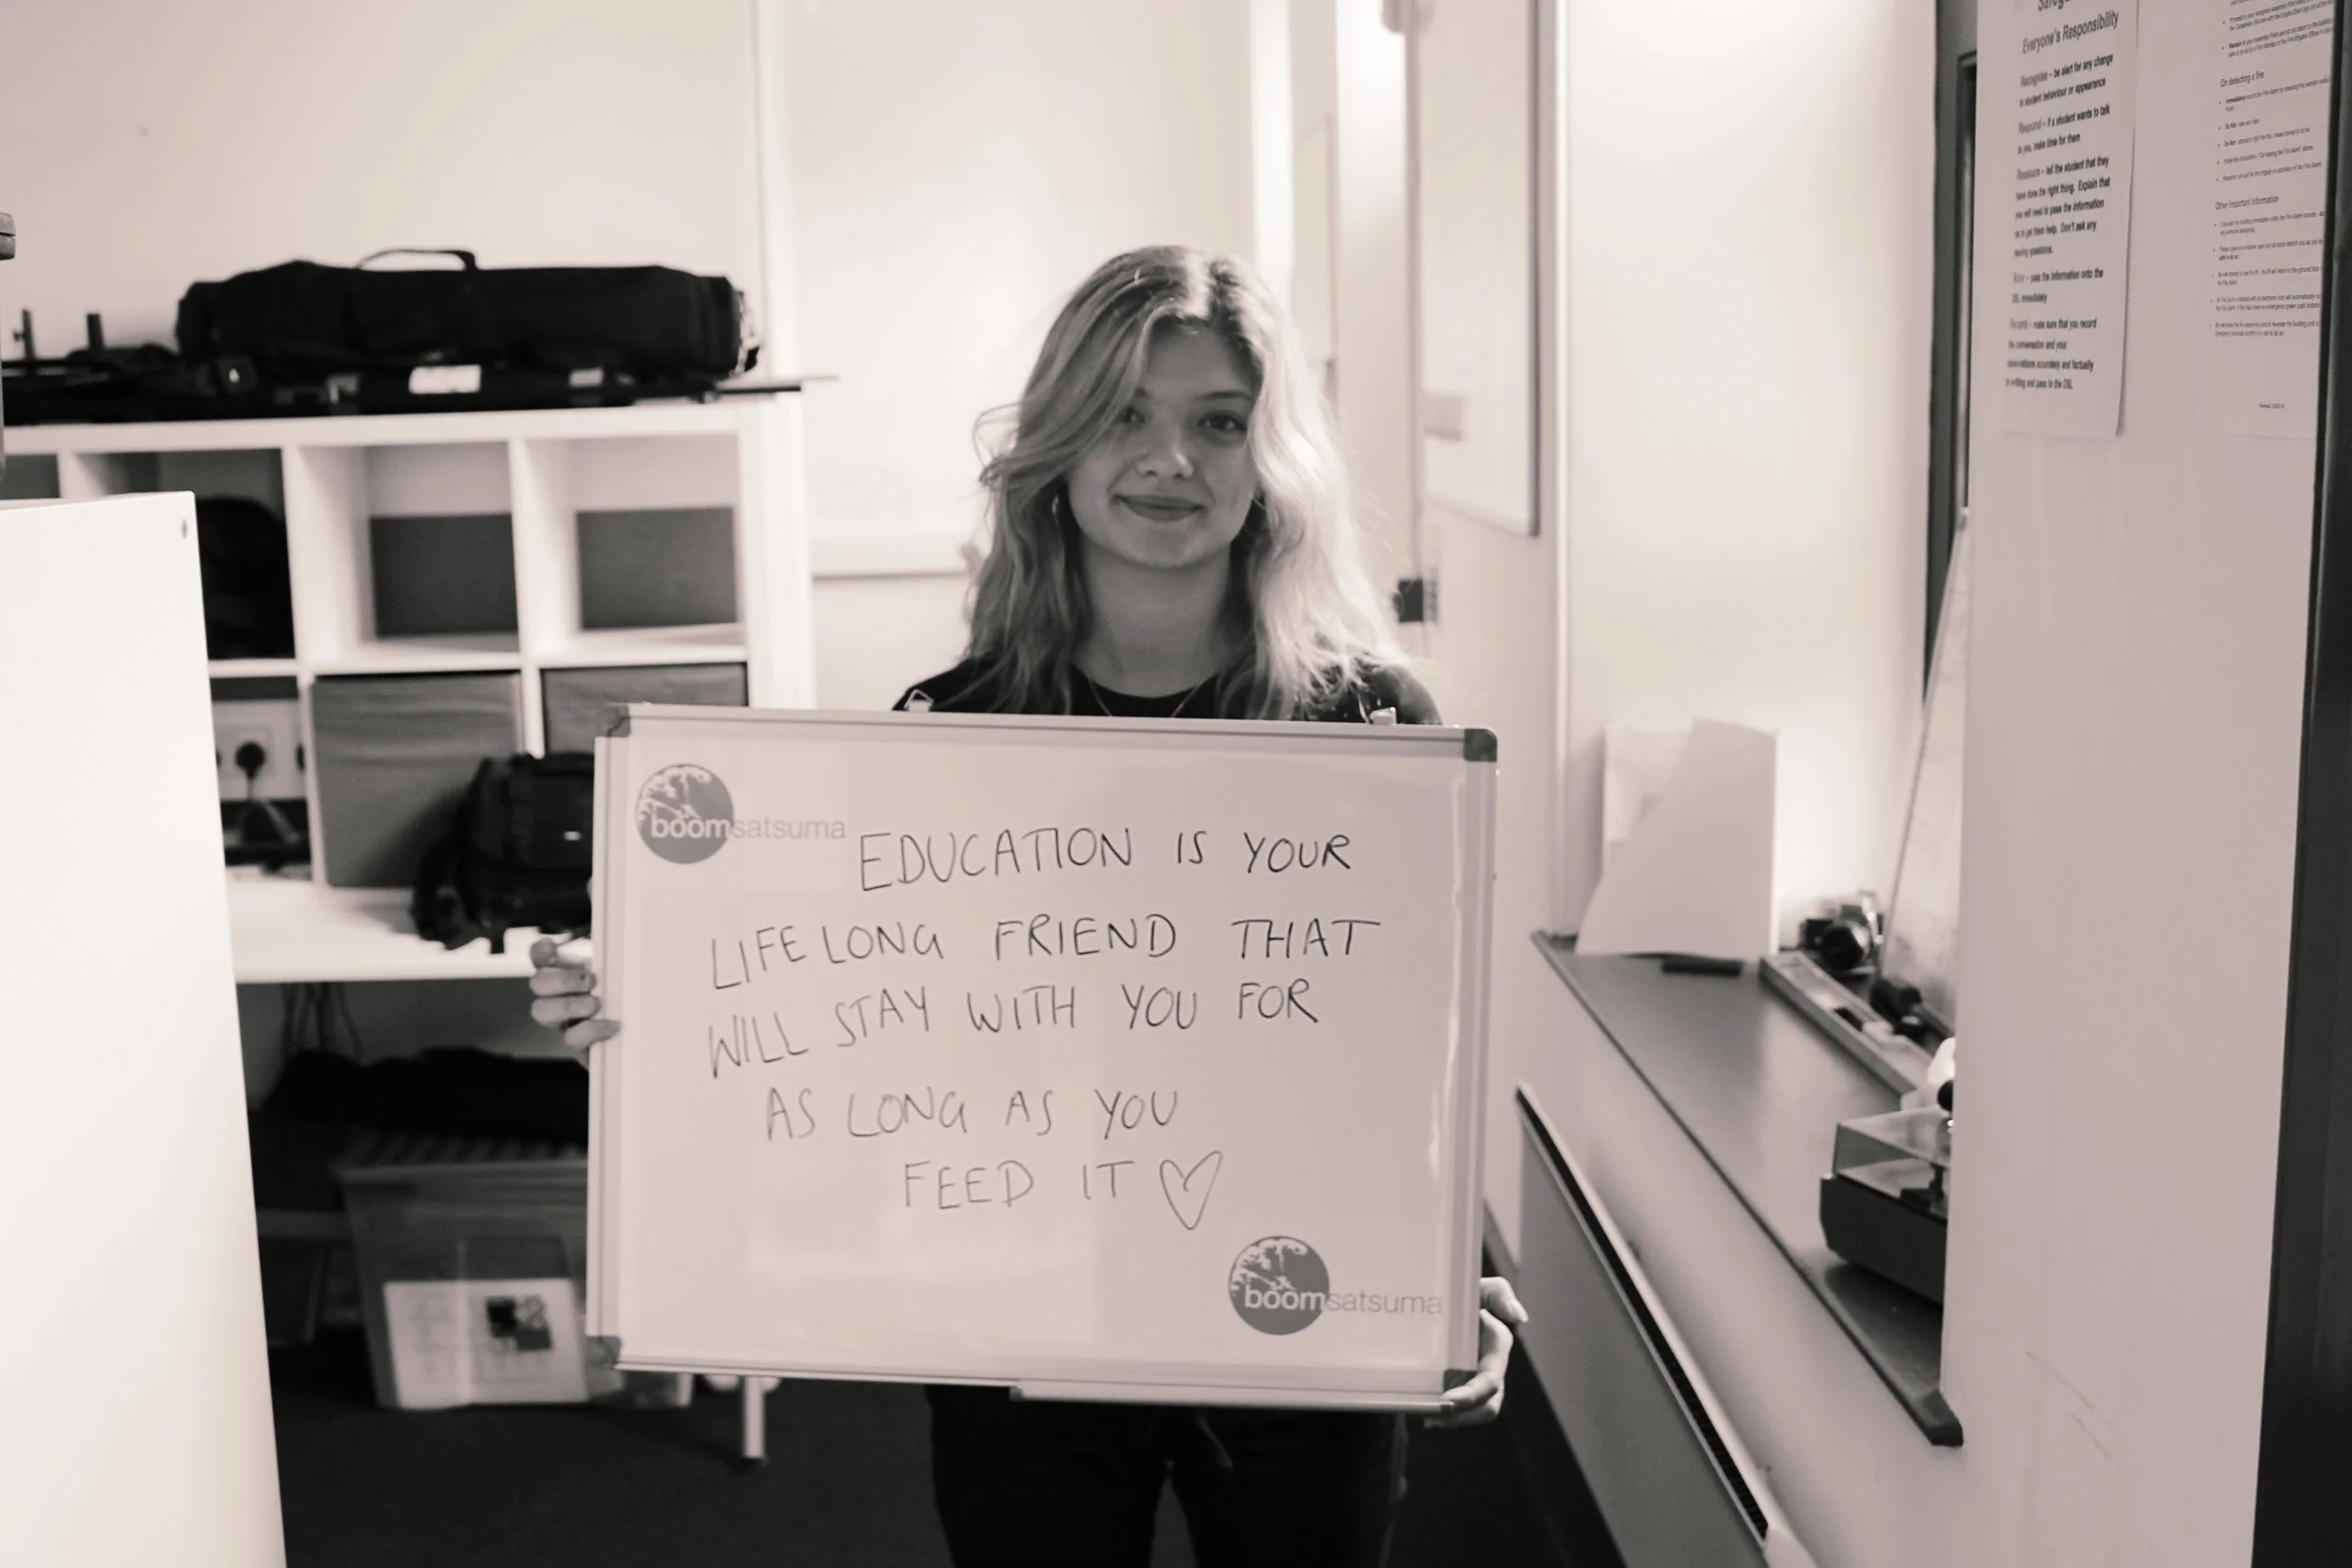 boomsatsuma
EDUCATION IS YOUR
LIFELONG FRIEND THAT
WILL STAY WITH YOU FOR
AS LONG AS YOU
FEED IT
boomsatsuma
Everyone's Responsibility
Recognise – be alert for any change
in student behaviour or appearance
Respond – if a student wants to talk
to you, make time for them
Reassure – tell the student that they
have done the right thing. Explain that
you will need to pass the information
on to get them help. Don't ask any
leading questions.
– pass the information onto the
DSL immediately
Record – make sure that you record
the conversation and your
observations accurately and factually
in writing and pass to the DSL
On detecting a fire
Other important information